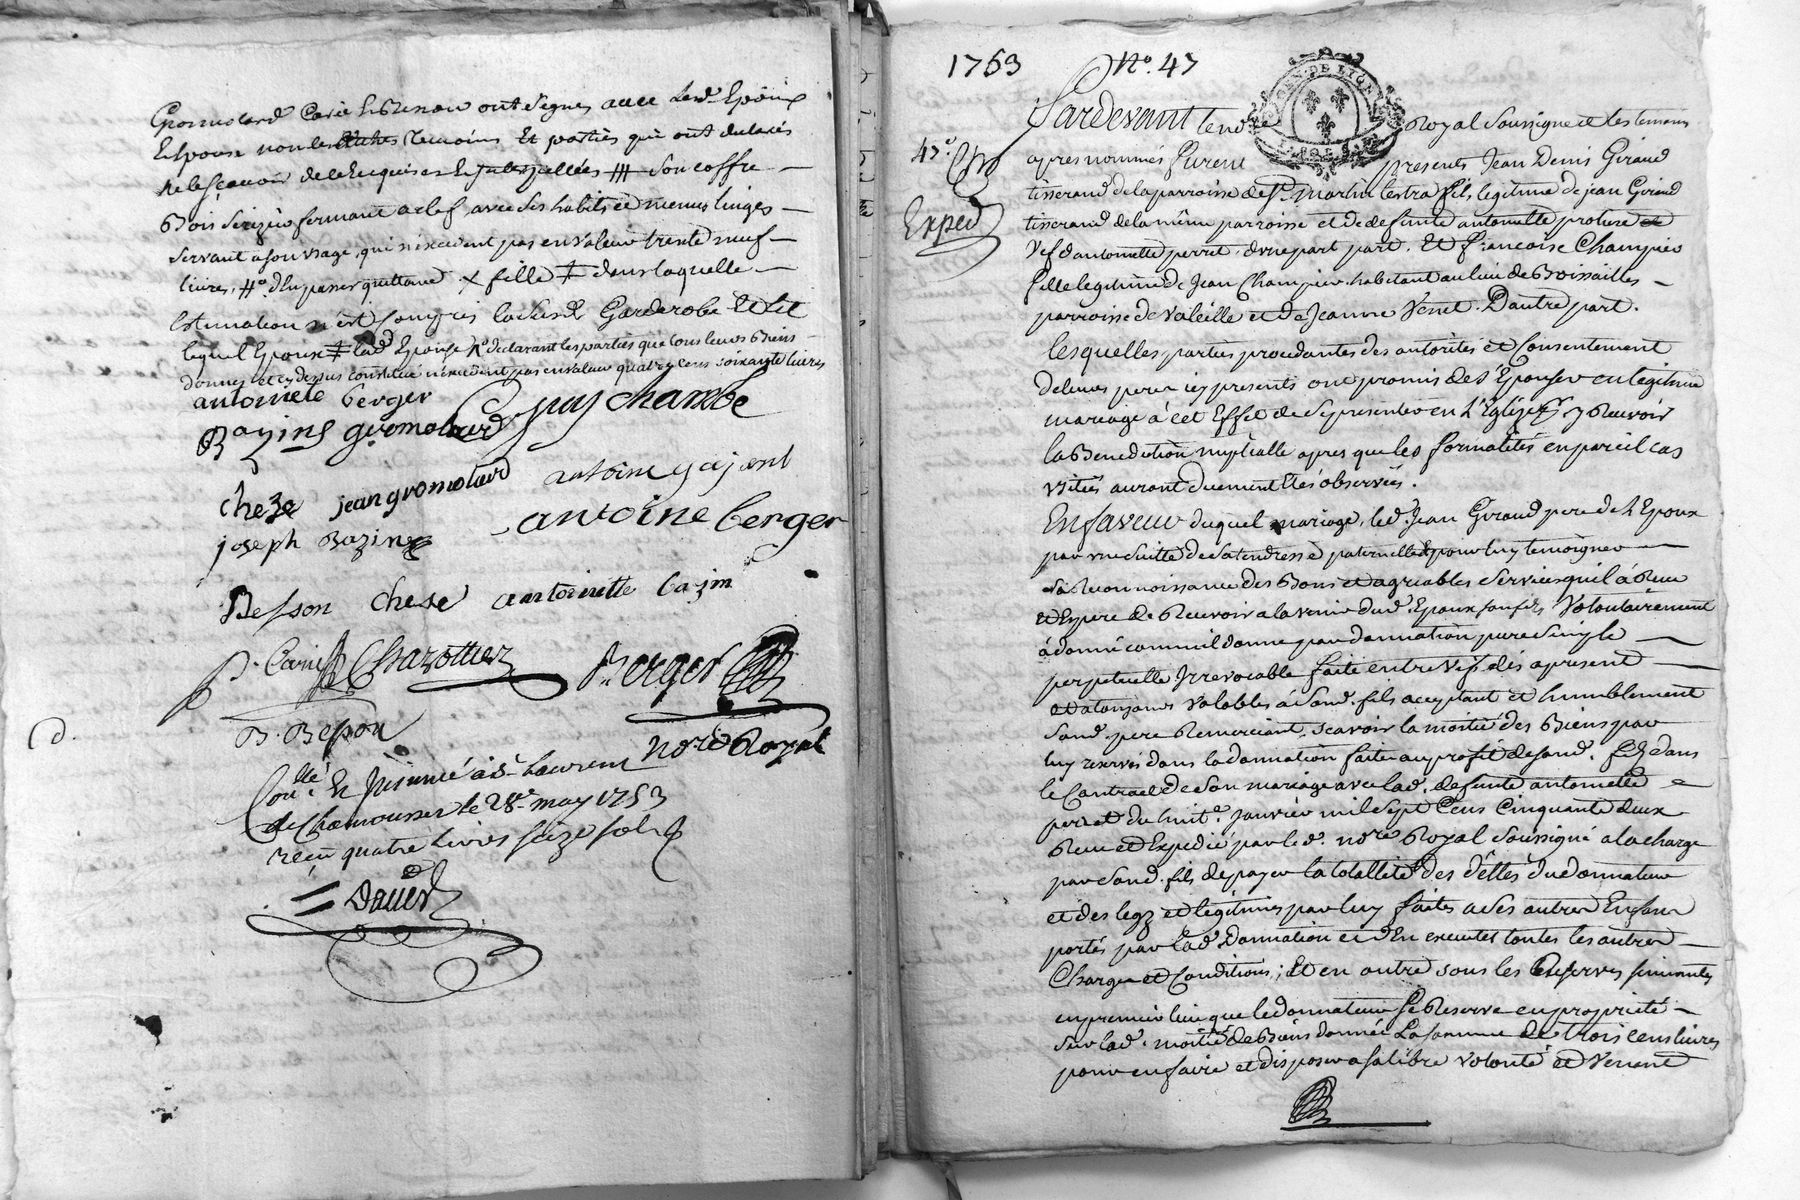 Gromolard Carié et Besson ont signés avec led. Epoux
Espouse non les autres temoins Et parties qui ont declarés
ne le sçavoir de ce Enquis et Interpellées son coffre
Bois serizier fermant a clef avec ses habits et menus linges
servant a son usage, qui n'excedent pas en valeur trente neuf
livres, d'En passer quittance. fille dans laquelle
Estimation n'est compris Garderobe et lit
lequel Epoux lad. Epouse declarant les parties que tous leurs Biens
donnés et cy dessus constitué n'excedent pas en valeur quatre cens soixante livres
antoinete berger
puy chambe
Bazins gromolard
Cheze jean gromolard antoine
joseph Bazin antoine berger
Besson Cheze antoinette bazin
P. Carié Chazottier Berger
B. Besson
no.re Royal
Con.lé Et Insinué à S.t Laurent
de Chamousset le 28.e may 1753
reçu quatre livres seize sols
D.
Dauer
1753 N.o 47
Pardevant le no.re Royal soussigné et les temoins
GEN. DE LYON
47.e
Exped.
apres nommés furent presents Jean Denis Giraud
tisserand de la parroisse de S.t martin Lestra fils legitime de jean Giraud
tisserand de la même parroisse et de defunte antoinette
Vef d'antoinette perret, d'une part part. Et francoise Champier
fille legitime de Jean Champier habitant au lieu de Boissailles
parroisse de Valeille et de Jeanne Venet. D'autre part.
lesquelles parties procedantes des autorités et Consentement
de leurs peres icy presents ont promis de s'Epouser en legitime
mariage à cet Effet de se presenter en L'Eglize p.r y Recevoir
la Benediction nuptialle apres que les formalités en pareil cas
usitées auront duement Etés observées.
En faveur duquel mariage, led. Jean Giraud pere de L'Epoux
par une suitte de sa tendresse paternelle Et pour luy temoigner
sa Reconnoissance des Bons et agreables services qu'il à Reçu
et Espere de Recevoir a la venir dud. Epoux son fils Volontairement
à donné comme il donne par donnation pure simple
perpetuelle Irrevocable faite entre Vifs dés apresent
et a toujours Valables à sond. fils acceptant et humblement
sond. pere Remerciant, sçavoir la moitié des Biens par
luy reservés dans la donnation faite au profit de sond. fils dans
le Contract de son mariage avec lad. defunte antoinette
perret du huit.e janvier mil sept Cens Cinquante deux
Reçu et Expedié par led. no.re Royal soussigné a la charge
par sond. fils de payer la totallité des dettes du donnateur
et des legs et legitimes par luy faites a ses autres Enfans
portés par lad. donnation et d'En executer toutes les autres
Charges et Conditions; Et en outre sous les Reserves suivantes
en premier lieu que le donnateur se Reserve en proprieté
sur lad. moitié de Biens donnée La somme de trois cens livres
pour en faire et disposer a sa libre volonté et Venant